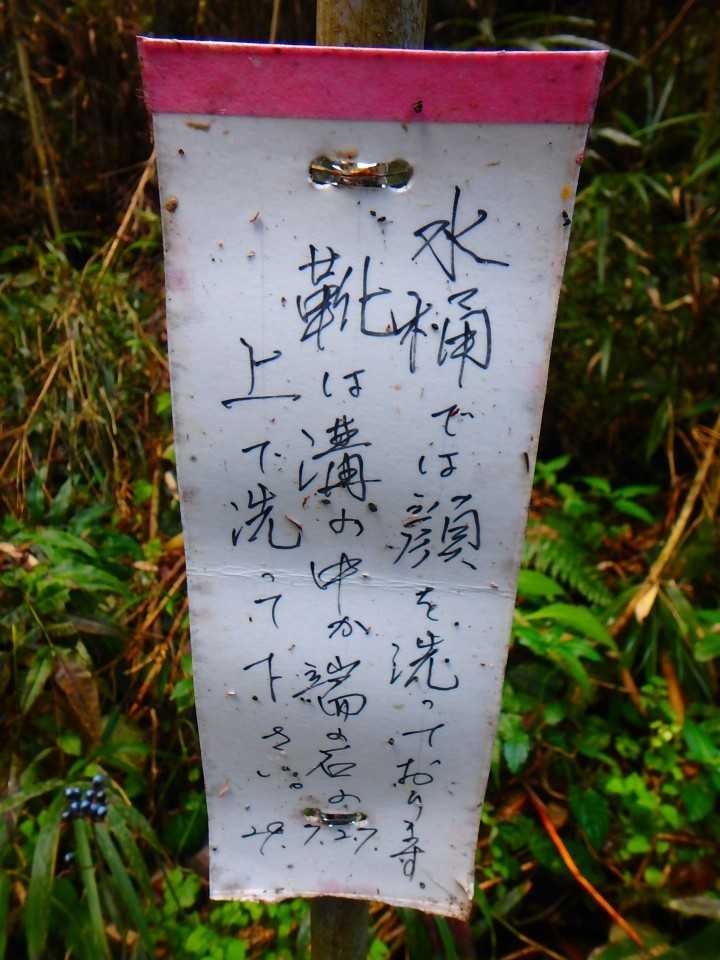 水桶では顔を洗っております。
靴は溝の中か端の石の
上で洗って下さい。
29.7.27.